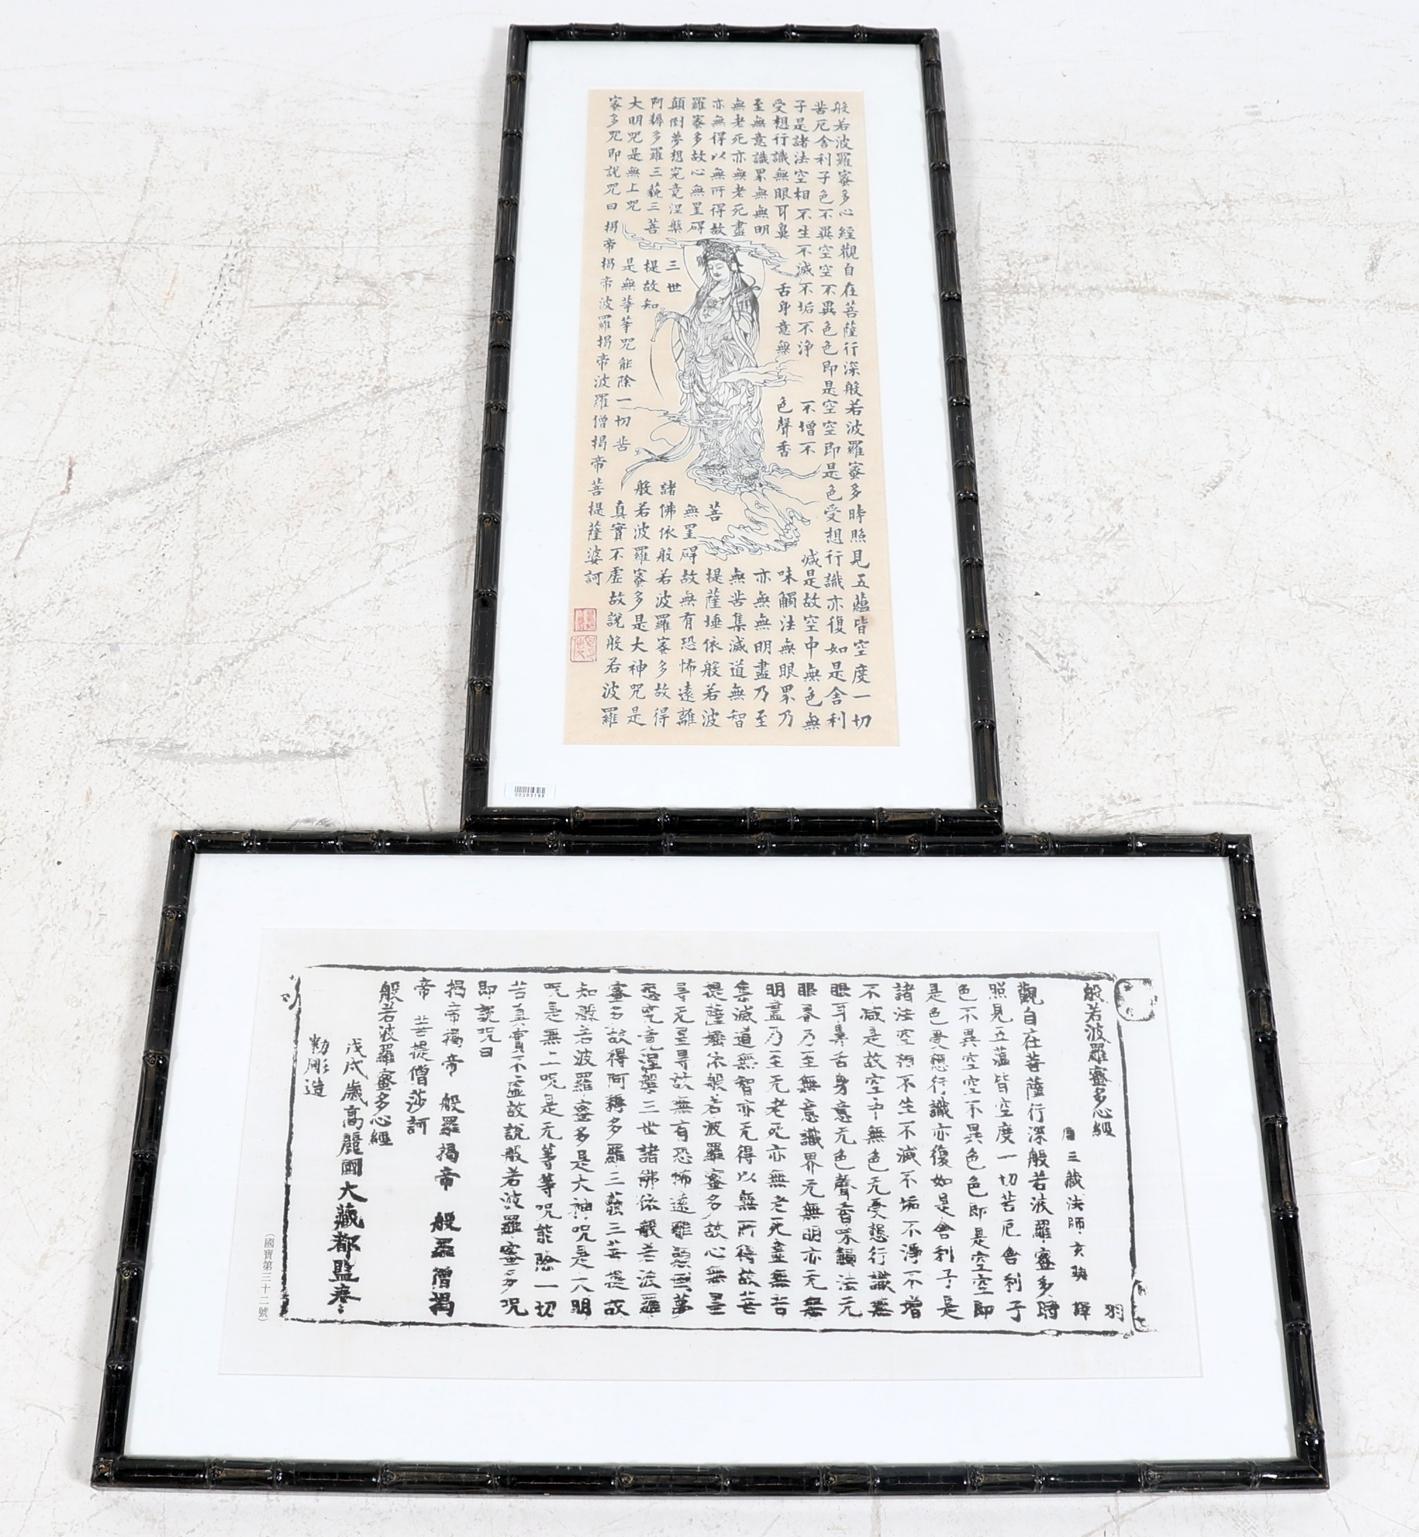 般若波羅蜜多心經觀自在菩薩行深般若波羅蜜多時照見五蘊皆空度一切
苦厄舍利子色不異空空不異色色即是空空即是色受想行識亦復如是舍利
子是諸法空相不生不滅不垢不淨不增不減是故空中無色無
受想行識無眼耳鼻舌身意無色聲香味觸法無眼界乃
至無意識界無無明亦無無明盡乃至
無老死亦無老死盡無苦集滅道無智
亦無得以無所得故菩提薩埵依般若波
羅蜜多故心無罣礙無罣礙故無有恐怖遠離
顛倒夢想究竟涅槃三世諸佛依般若波羅蜜多故得
阿耨多羅三藐三菩提故知般若波羅蜜多是大神咒是
大明咒是無上咒是無等等咒能除一切苦真實不虛故說般若波羅
蜜多咒即說咒曰揭帝揭帝波羅揭帝波羅僧揭帝菩提薩婆訶
般若波羅蜜多心經 羽
唐三藏法師玄奘 譯
觀自在菩薩行深般若波羅蜜多時
照見五蘊皆空度一切苦厄舍利子
色不異空空不異色色即是空空即
是色受想行識亦復如是舍利子是
諸法空相不生不滅不垢不淨不增
不減是故空中無色无受想行識無
眼耳鼻舌身意无色聲香味觸法无
眼界乃至無意識界无無明亦无無
明盡乃至无老死亦無老死盡無苦
集滅道無智亦无得以無所得故菩
提薩埵依般若波羅蜜多故心無罣
㝵无罣㝵故無有恐怖遠離顛倒夢
想究竟涅槃三世諸佛依般若波羅
蜜多故得阿耨多羅三藐三菩提故
知般若波羅蜜多是大神呪是大明
呪是無上呪是无等等呪能除一切
苦真實不虛故說般若波羅蜜多呪
即說呪曰
揭帝揭帝 般羅揭帝 般羅僧揭
帝 菩提僧莎訶
般若波羅蜜多心經
戊戌歲高麗國大藏都監奉
勑彫造
（國寶第三十二號）